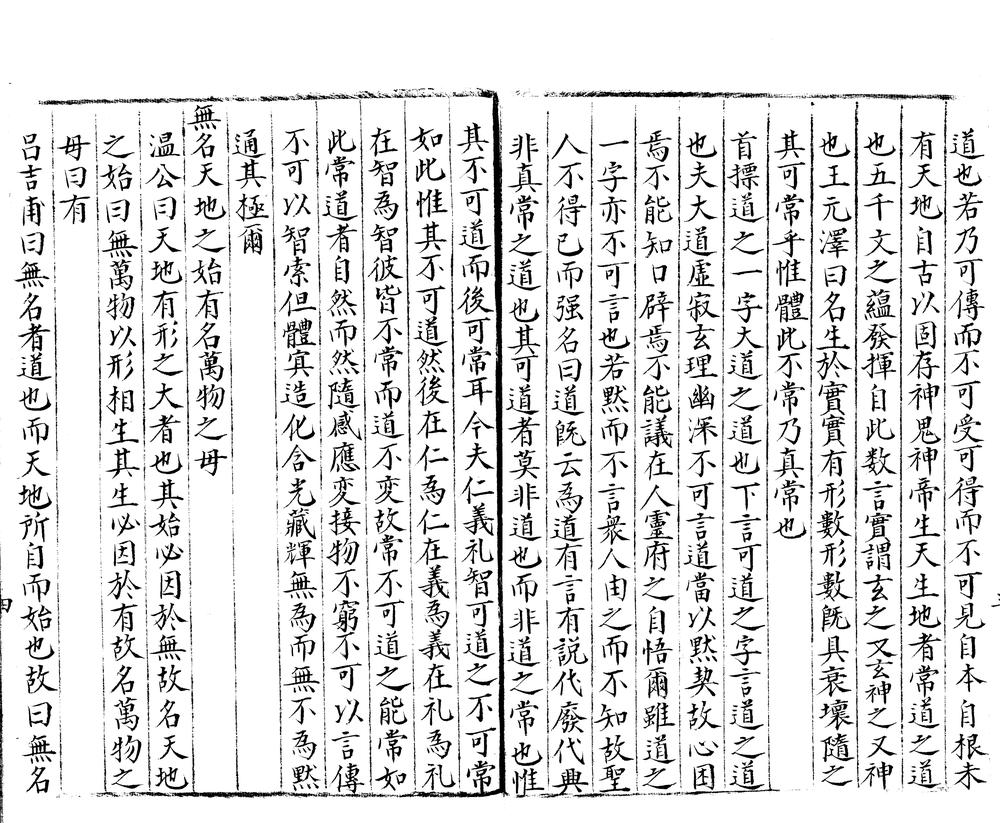 道也若乃可傳而不可受可得而不可見自本自根未
有天地自古以固存神鬼神帝生天生地者常道之道
也五千文之蘊發揮自此数言實謂玄之又玄神之又神
也王元澤曰名生於實實有形數形數旣具衰壞隨之
其可常乎惟體此不常乃真常也
首摽道之一字大道之道也下言可道之字言道之道
也夫大道虛寂玄理幽深不可言道當以默契故心困
焉不能知口辟焉不能議在人靈府之自悟爾雖道之
一字亦不可言也若默而不言衆人由之而不知故聖
人不得已而强名曰道旣云為道有言有説代廢代典
非真常之道也其可道者莫非道也而非道之常也惟
其不可道而後可常耳今夫仁義礼智可道之不可常
如此惟其不可道然後在仁為仁在義為義在礼為礼
在智為智彼皆不常而道不变故常不可道之能常如
此常道者自然而然隨感應変接物不窮不可以言傳
不可以智索但體冥造化含光藏輝無為而無不為默
通其極爾
無名天地之始有名萬物之母
溫公曰天地有形之大者也其始必因於無故名天地
之始曰無萬物以形相生其生必因於有故名萬物之
母曰有
吕吉甫曰無名者道也而天地所自而始也故曰無名
四